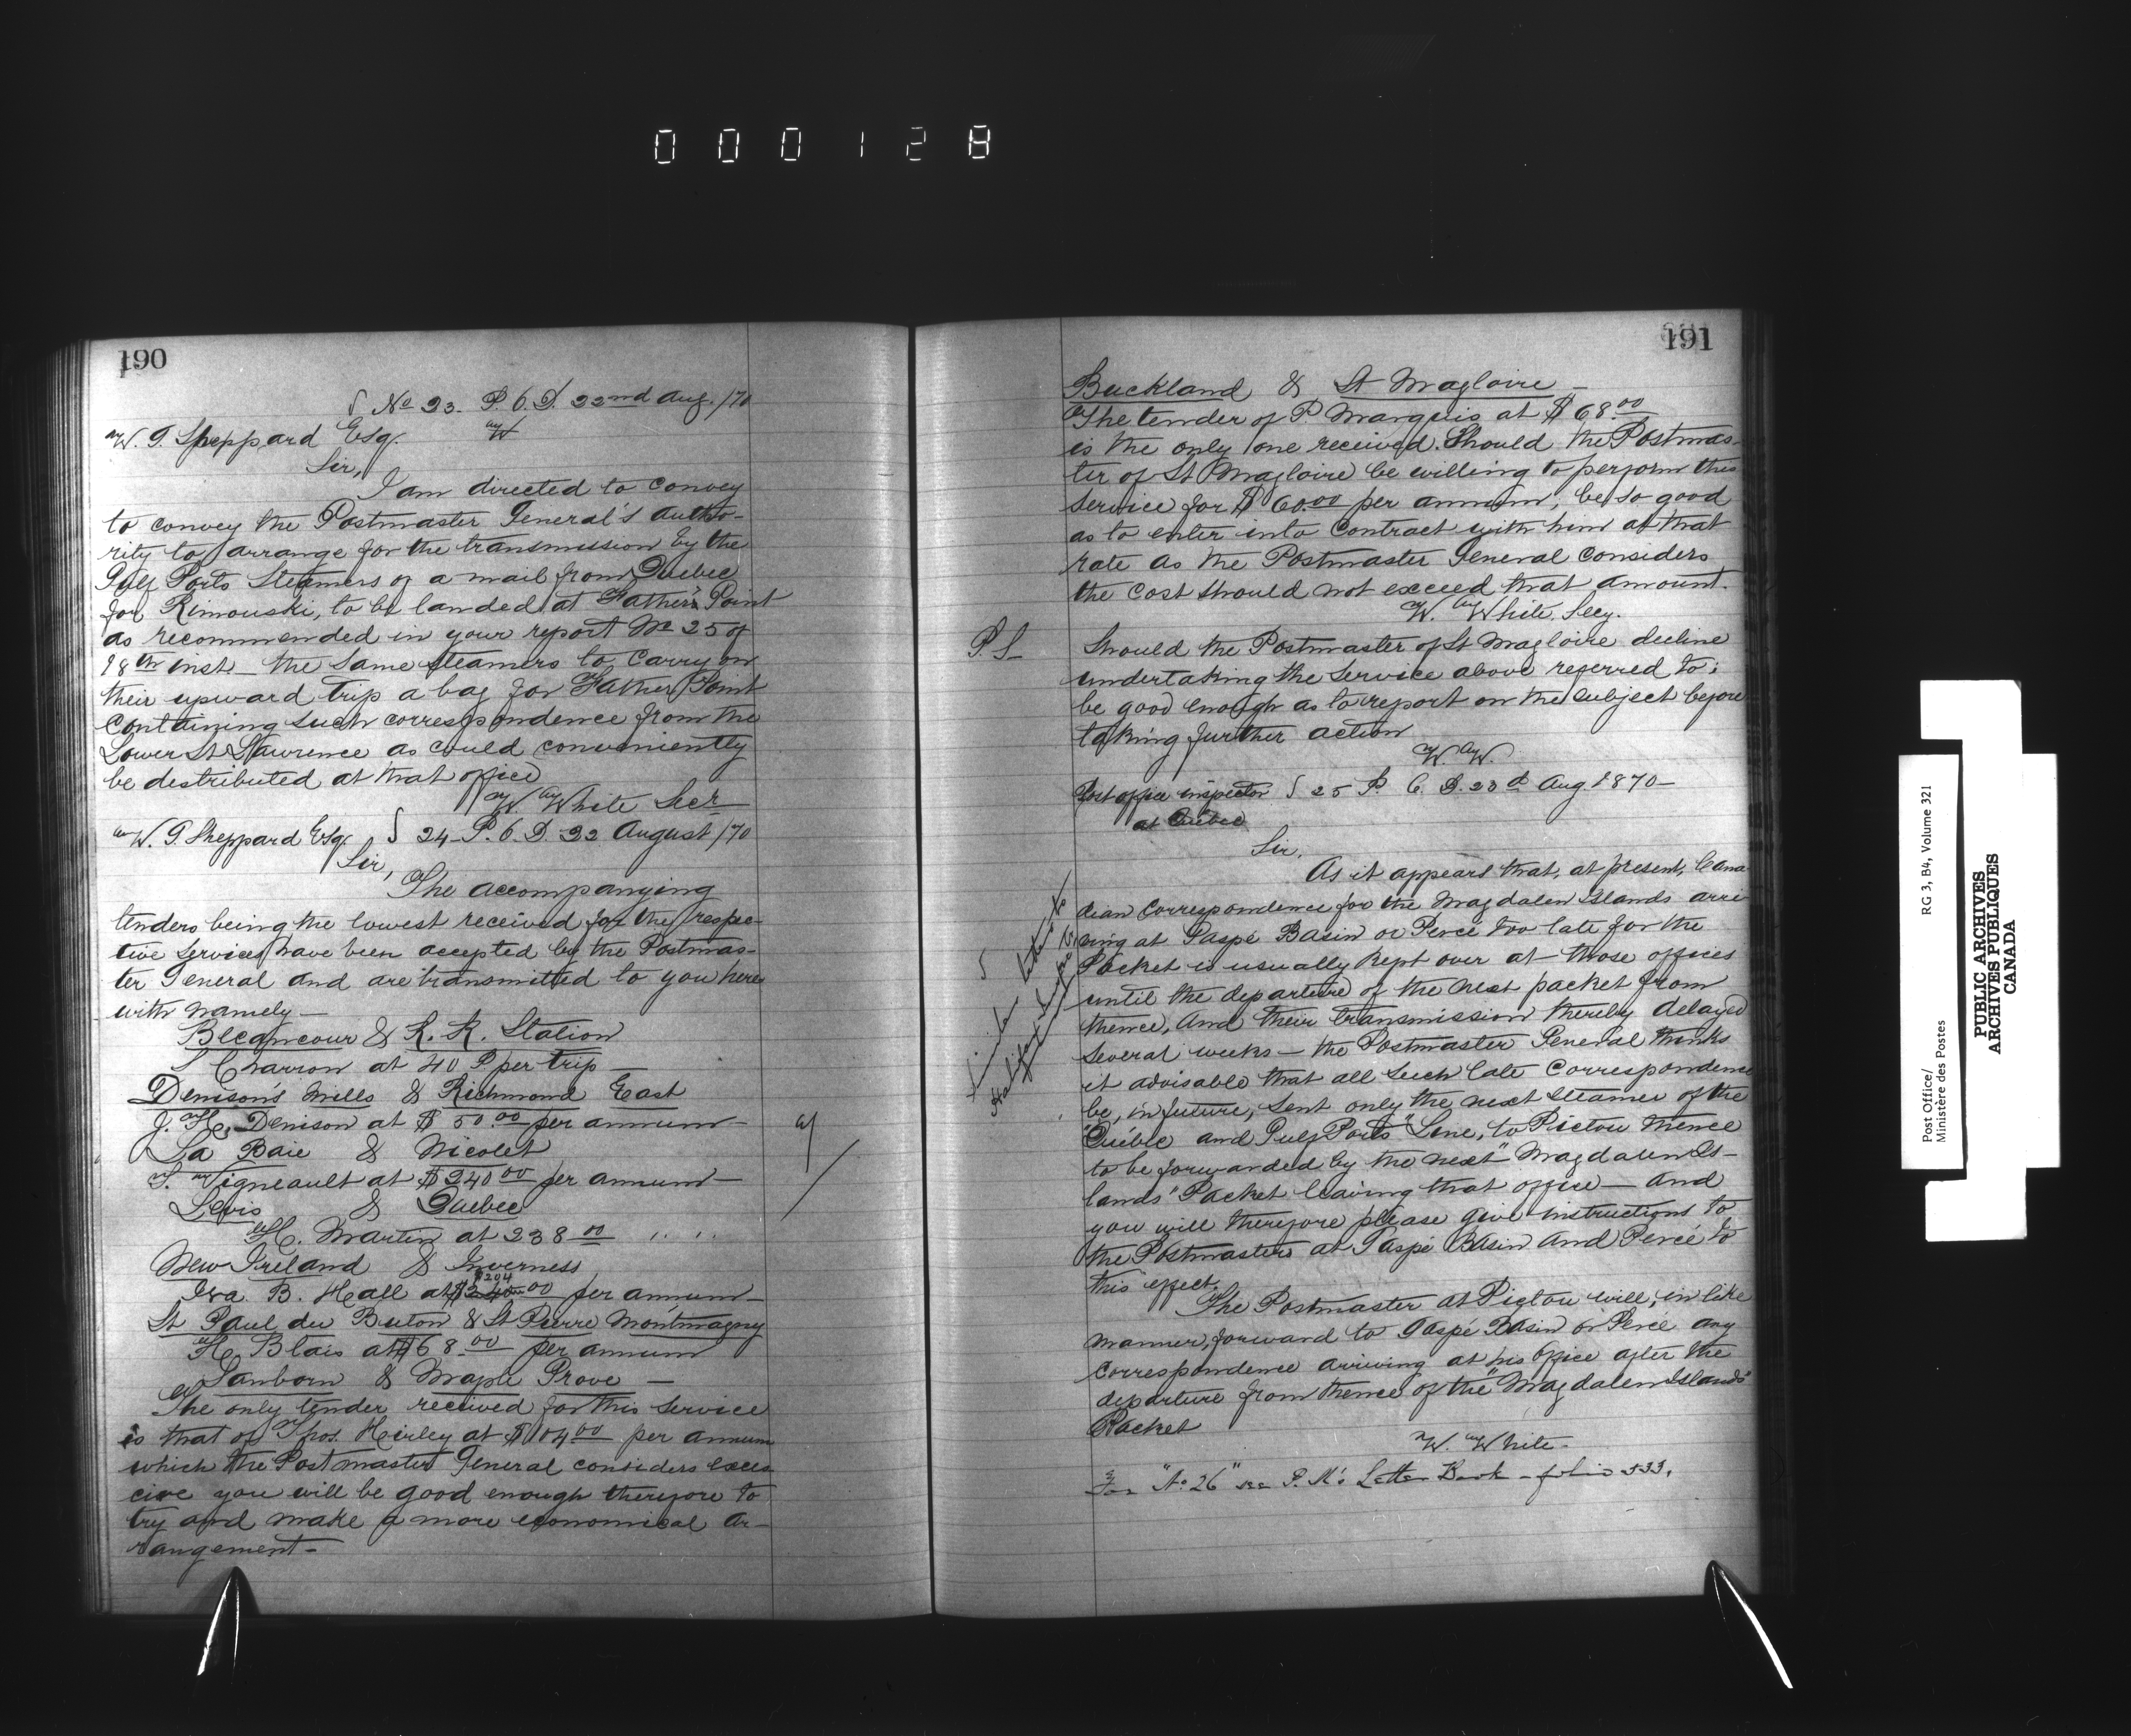 000128
190
§ No 23. P.O.D. 22nd Aug. /70
W. G. Sheppard Esq. W
Sir,
I am directed to convey
to convey the Postmaster General's autho-
rity to arrange for the transmission by the
Gulf Ports Steamers of a mail from Quebec
for Rimouski, to be landed at Father Point
as recommended in your report No 25 of
18th inst - the same steamers to carry on
their upward trip a bag for Father Point
containing such correspondence from the
Lower St Lawrence as could conveniently
be distributed at that office
W White Secr
W. G. Sheppard Esq. § 24 P.O.D. 22 August /70
Sir,
The accompanying
tenders being the lowest received for the respec-
tive services have been accepted by the Postmas-
ter General and are transmitted to you here
with namely -
Becancour & R. R. Station
Charron at 40 per trip -
Denison's Mills & Richmond East
J. H. Denison at $50.00 per annum
La Baie & Nicolet
Vigneault at $240.00 per annum -
Levis & Quebec
H. Martin at 238.00 " "
New Ireland & Inverness
$204
Iva. B. Hall at $240.00 per annum -
St Paul du Buton & St Pierre Montmagny
H. Blais at $68.00 per annum
Sanborn & Maple Grove -
The only tender received for this service
is that of Thos. Hurley at $104.00 per annum
which the Postmaster General considers exces
cive you will be good enough therefore to
try and make a more economical ar-
rangement -
191
Buckland & St Magloire -
The tender of P. Marquis at $68.00
is the only one received. Should the Postmas-
ter of St Magloire be willing to perform this
service for $60.00 per annum, be so good
as to enter into contract with him at that
rate as the Postmaster General considers
the cost should not exceed that amount.
W. White, Secy.
P.S. Should the Postmaster of St Magloire decline
undertaking the service above referred to;
be good enough as to report on the subject before
taking further action
W. W.
Post office inspector § 25 P.O.D. 23d Aug. 1870 -
at Quebec
Sir,
As it appears that, at present, Cana
dian correspondence for the Magdalen Islands arri
ving at Gaspé Basin or Percé too late for the
Packet is usually kept over at those offices
until the departure of the next packet from
thence, and their transmission thereby delayed
several weeks - the Postmaster General thinks
it advisable that all such late correspondence
be, in future, sent only the next steamer of the
"Québec and Gulf Ports" Line, to Pictou thence
to be forwarded by the next "Magdalen Is-
lands" Packet leaving that office - and
you will therefore please give instructions to
the Postmasters at Gaspé Basin and Percé to
this effect.
The Postmaster at Pictou will, in like
manner, forward to Gaspé Basin or Percé any
correspondence arriving at his office after the
departure from thence of the "Magdalen Islands"
Packet
W. White -
For "No 26" see P. M's Letter Book - folio 533.
Similar letter to
Halifax
Post Office/
Ministère des Postes
RG 3, B4, Volume 321
PUBLIC ARCHIVES
ARCHIVES PUBLIQUES
CANADA